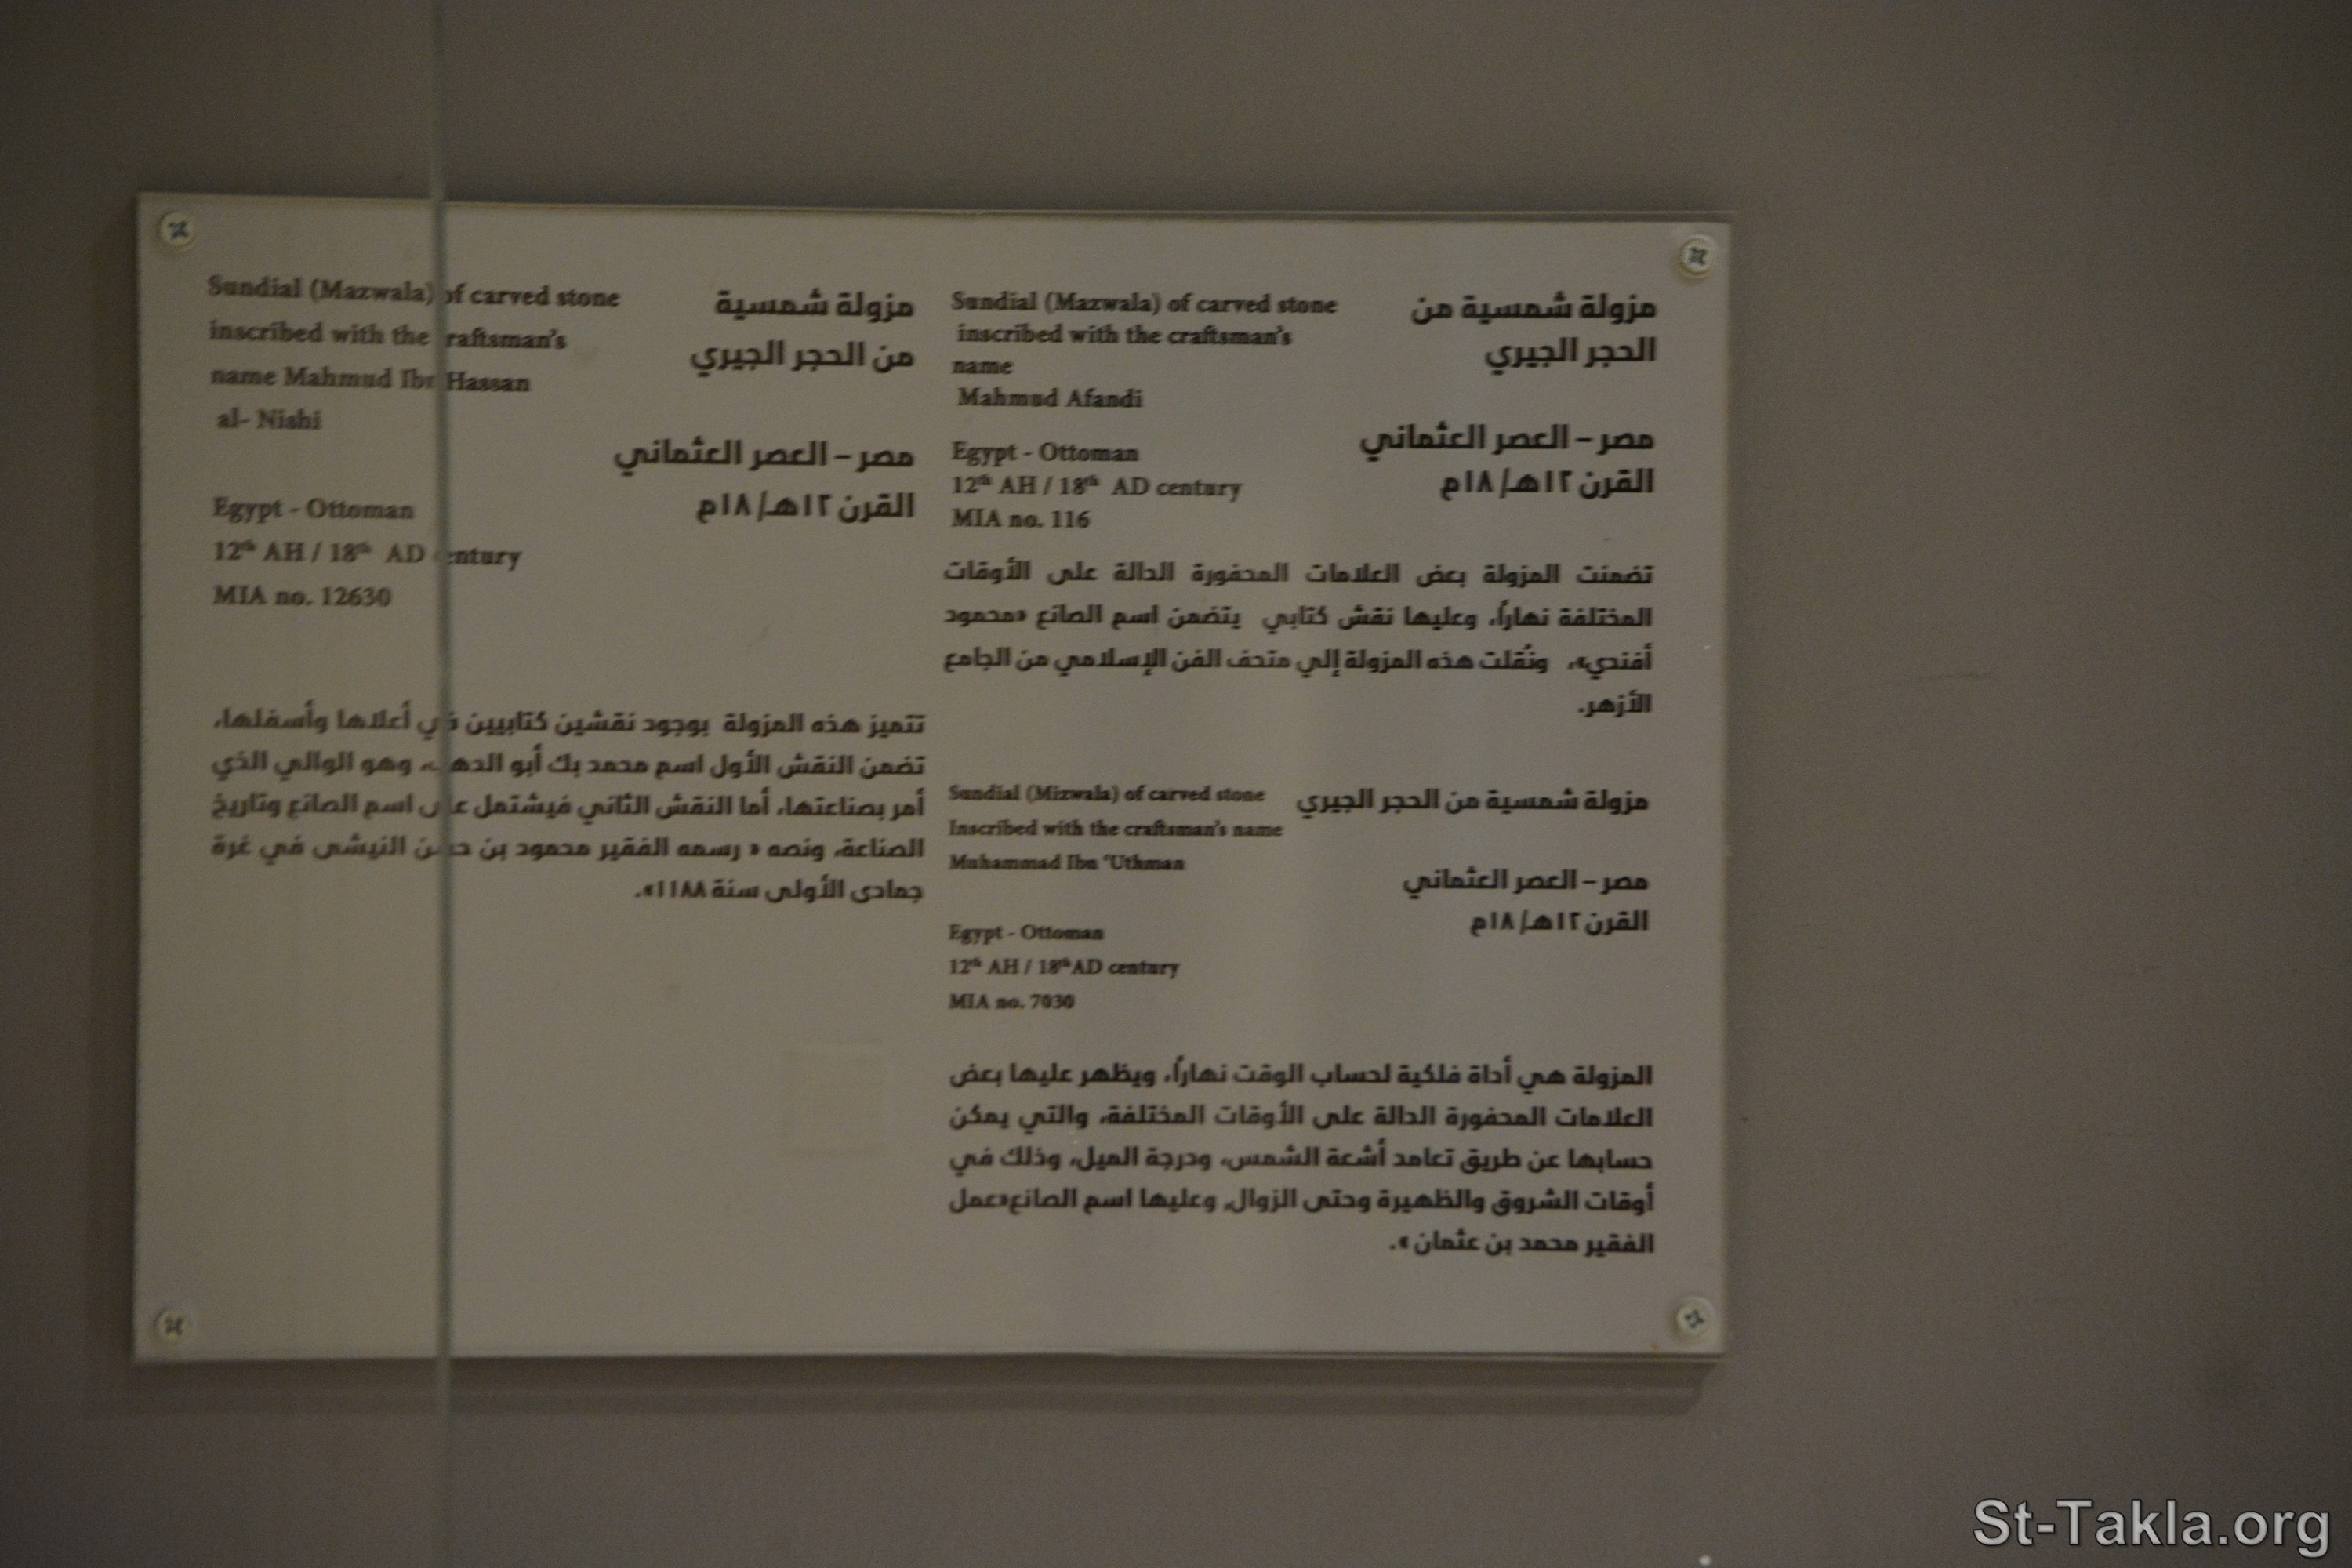 Sundial (Mazwala) of carved stone
inscribed with the craftsman's
name Mahmud Ibn Hassan
al- Nishi
Egypt - Ottoman
12th AH / 18th AD century
MIA no. 12630
مزولة شمسية
من الحجر الجيري
مصر – العصر العثماني
القرن ١٢هـ/ ١٨م
تتميز هذه المزولة بوجود نقشين كتابيين في أعلاها وأسفلها،
تضمن النقش الأول اسم محمد بك أبو الدهب، وهو الوالي الذي
أمر بصناعتها، أما النقش الثاني فيشتمل على اسم الصانع وتاريخ
الصناعة، ونصه « رسمه الفقير محمود بن حسن النيشى في غرة
جمادى الأولى سنة ١١٨٨».
Sundial (Mazwala) of carved stone
inscribed with the craftsman's
name
Mahmud Afandi
Egypt - Ottoman
12th AH / 18th AD century
MIA no. 116
مزولة شمسية من
الحجر الجيري
مصر – العصر العثماني
القرن ١٢هـ/ ١٨م
تضمنت المزولة بعض العلامات المحفورة الدالة على الأوقات
المختلفة نهاراً، وعليها نقش كتابي يتضمن اسم الصانع «محمود
أفندي»، ونُقلت هذه المزولة إلي متحف الفن الإسلامي من الجامع
الأزهر.
Sundial (Mizwala) of carved stone
Inscribed with the craftsman's name
Muhammad Ibn 'Uthman
Egypt - Ottoman
12th AH / 18thAD century
MIA no. 7030
مزولة شمسية من الحجر الجيري
مصر – العصر العثماني
القرن ١٢هـ/ ١٨م
المزولة هي أداة فلكية لحساب الوقت نهاراً، ويظهر عليها بعض
العلامات المحفورة الدالة على الأوقات المختلفة، والتي يمكن
حسابها عن طريق تعامد أشعة الشمس، ودرجة الميل، وذلك في
أوقات الشروق والظهيرة وحتى الزوال, وعليها اسم الصانع«عمل
الفقير محمد بن عثمان ».
St-Takla.org